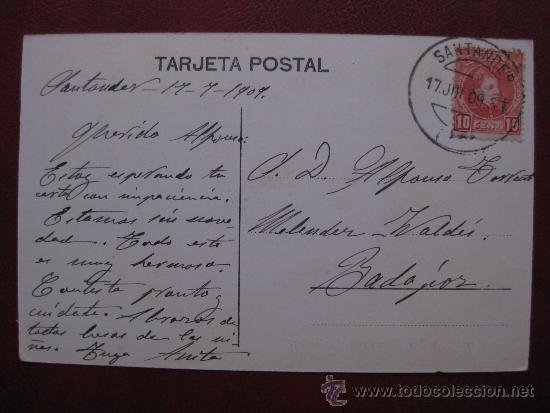 TARJETA POSTAL
Santander - 17-7-1909.
Querido Alfonso:
Estoy esperando tu
carta con impaciencia.
Estamos sin nove-
dad. Todo esto
es muy hermoso.
Contesta pronto y
cuidate. Abrazos de
todas besos de las ni-
ñas. Tuya Anita
SANTANDER
17 JUL 09
10 CENTS 10
S. D. Alfonso
Melendez Valdés.
Badajoz.
todocoleccion.net